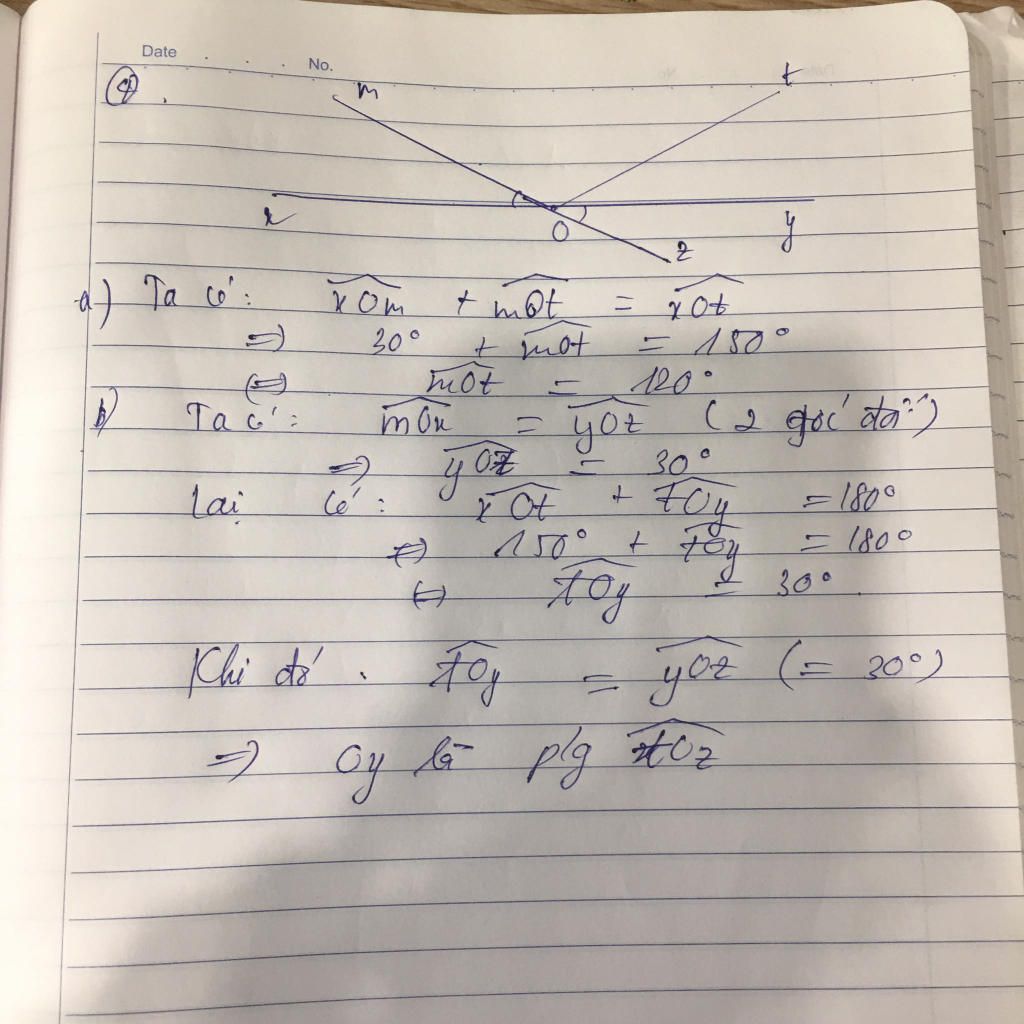 Date
No.
④.
m
t
x
O
y
z
a) Ta có: xOm + mOt = xOt
=> 30° + mOt = 150°
<=> mOt = 120°
b) Ta có: mOx = yOz (2 góc đđ)
=> yOz = 30°
Lại có: xOt + tOy = 180°
<=> 150° + tOy = 180°
<=> tOy = 30°.
Khi đó. tOy = yOz (= 30°)
=> Oy là p/g tOz